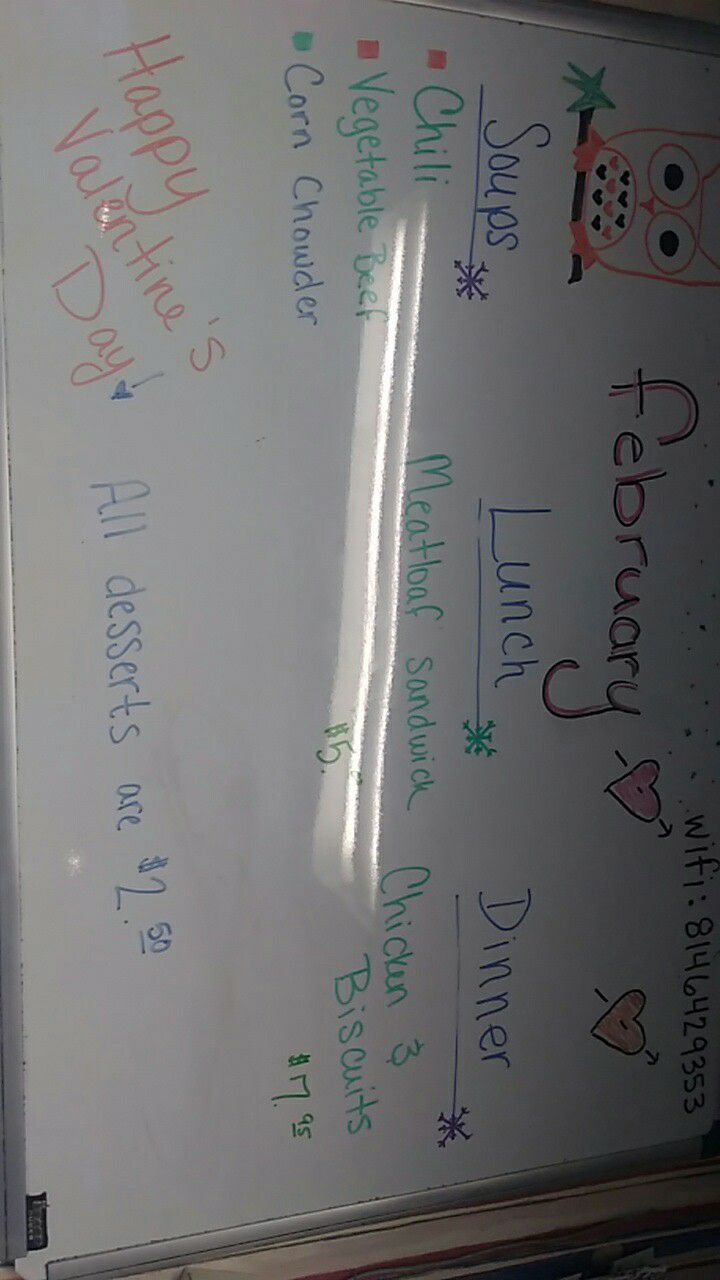 wifi: 8146429353
february
Soups
Chili
Vegetable Beef
Corn Chowder
Lunch
Meatloaf sandwich
$5.
Dinner
Chicken &
Biscuits
$7.95
Happy
Valentine's
Day!
All desserts are $2.50